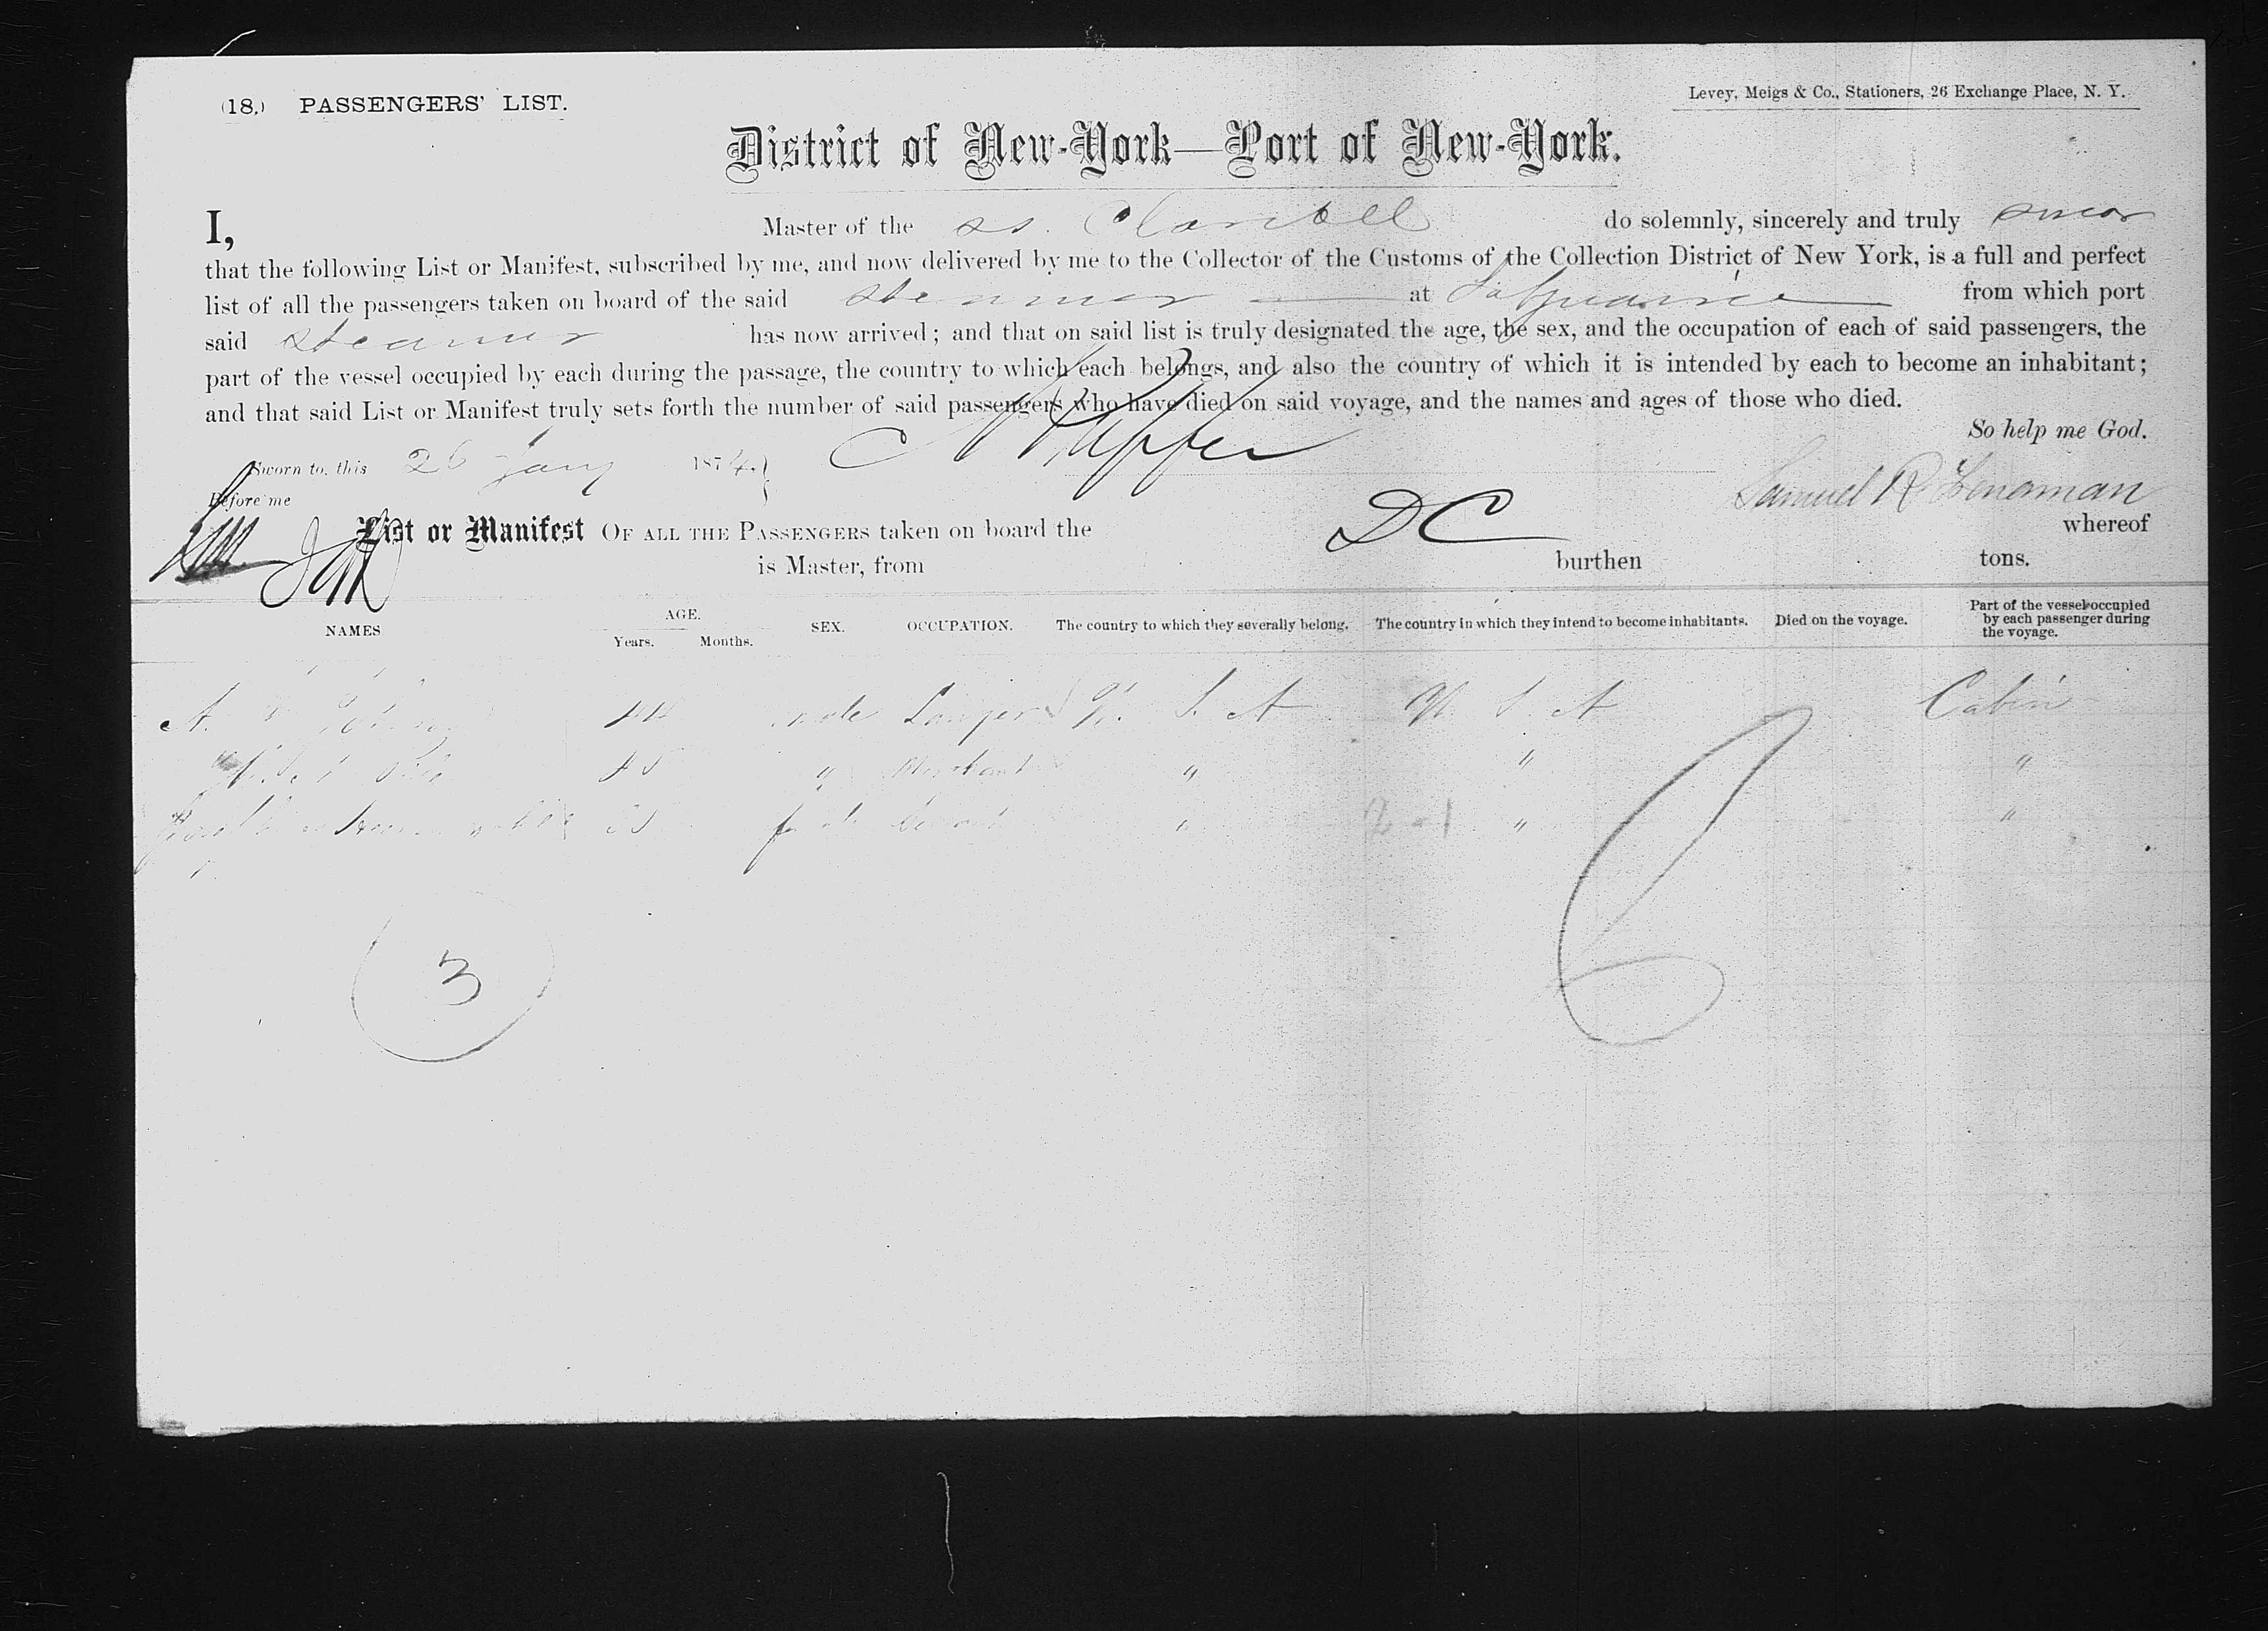 (18.) PASSENGERS' LIST.
Levey, Meigs & Co., Stationers, 26 Exchange Place, N. Y.
District of New-York—Port of New-York.
I, Master of the ss. Claribell do solemnly, sincerely and truly swear
that the following List or Manifest, subscribed by me, and now delivered by me to the Collector of the Customs of the Collection District of New York, is a full and perfect
list of all the passengers taken on board of the said steamer at from which port
said steamer has now arrived; and that on said list is truly designated the age, the sex, and the occupation of each of said passengers, the
part of the vessel occupied by each during the passage, the country to which each belongs, and also the country of which it is intended by each to become an inhabitant;
and that said List or Manifest truly sets forth the number of said passengers who have died on said voyage, and the names and ages of those who died.
So help me God.
Sworn to, this 26 Jany 1874.
Before me
Samuel R
List or Manifest OF ALL THE PASSENGERS taken on board the DC whereof
is Master, from burthen tons.
NAMES AGE. Years. Months. SEX. OCCUPATION. The country to which they severally belong. The country in which they intend to become inhabitants. Died on the voyage. Part of the vessel occupied by each passenger during the voyage.
A. male Lawyer U. S. A U. S. A Cabin
45 " Merchant " " "
female " " "
3
6